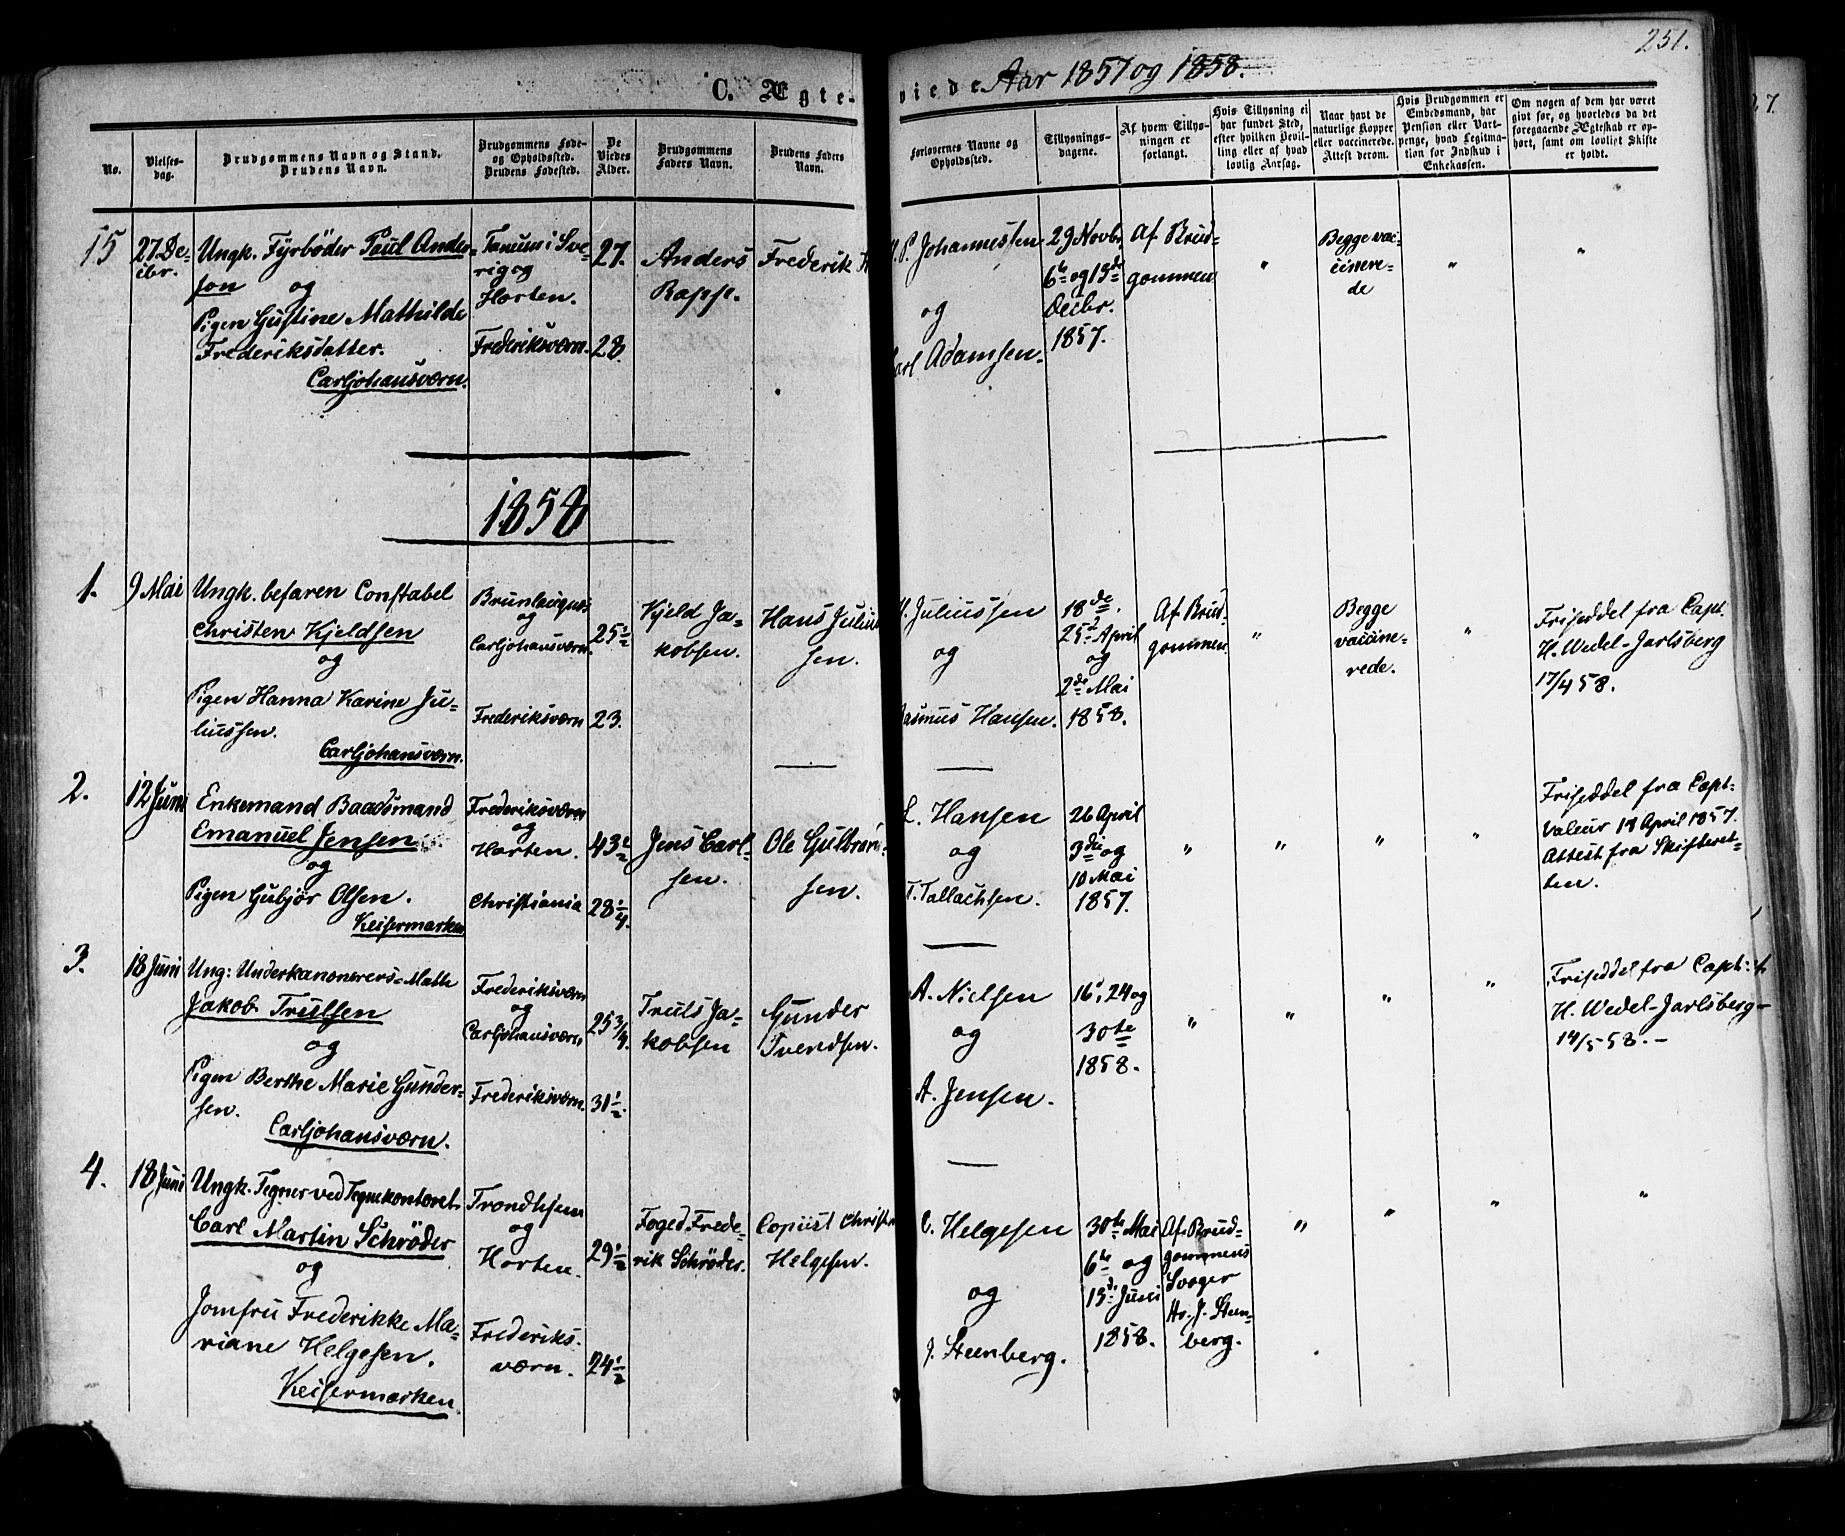 251.
C. Ægte-
viede Aar 1857 og 1858.
No.
Vielses-
dag.
Brudgommens Navn og Stand.
Brudens Navn.
Brudgommens Føde-
og Opholdssted.
Brudens Fødested.
De
Viedes
Alder.
Brudgommens
Faders Navn.
Brudens Faders
Navn.
Forlovernes Navne og
Opholdssted.
Tillysnings-
dagene.
Af hvem Tillys-
ningen er
forlangt.
Hvis Tillysning ei
har fundet Sted,
efter hvilken Bevil-
ling eller af hvad
lovlig Aarsag.
Naar havt de
naturlige Kopper
eller vaccinerede.
Attest derom.
Hvis Brudgommen er
Embedsmand, har
Pension eller Vart-
penge, hvad Legitima-
tion for Indskud i
Enkekassen.
Om nogen af dem har været
gift før, og hvorledes da det
foregaaende Ægteskab er op-
hørt, samt om lovligt Skifte
er holdt.
15
27 De-
cbr.
Ungk. Fyrbøder Paul Ander-
son og
Pigen Gustine Mathilde
Frederiksdatter.
Carljohansværn.
Tanum i Sve-
rig og
Horten.
Frederiksværn.
27.
28.
Anders
Rapp.
Frederik
P. Johannessen
og
Carl Adamsen.
29 Novbr.
6te og 13de
Decbr.
1857.
Af Brud-
gommen
"
Begge vac-
cinere-
de
"
"
1858
1.
9 Mai
Ungk. befaren Constabel
Christen Kjeldsen
og
Pigen Hanna Karine Ju-
liussen.
Carljohansværn.
Brunlaugnes
og
Carljohansværn.
Frederiksværn
25½
23.
Kjeld Ja-
kobsen.
Hans Julius-
sen.
H. Juliussen
og
Rasmus Hansen.
18de.
25de April
og
2de Mai
1858.
Af Brud-
gommen.
"
Begge
vaccine-
rede.
"
Friseddel fra Capt.
H. Wedel-Jarlsberg
17/4 58.
2.
12 Juni
Enkemand Baadsmand
Emanuel Jensen
og
Pigen Gubjør Olsen.
Keisermarken
Frederiksværn
og
Horten.
Christiania
43½
28¼.
Jens Carl-
sen.
Ole Gulbran-
sen.
L. Hansen
og
T. Tallachsen.
26 April
3die og
10 Mai
1857.
"
"
"
"
Friseddel fra Capt:
Valeur 14 April 1857.
Attest fra Skifteret-
ten.
3.
18 Juni
Ung: Underkanonerers-Math
Jakob Trulsen
og
Pigen Berthe Marie Gunder-
sen.
Carljohansværn.
Frederiksværn
og
Carljohansværn
Frederiksværn.
25¾.
31½.
Truls Ja-
kobsen
Gunder
Tvendsen.
A. Nielsen
og
A. Jensen.
16, 24 og
30te
1858.
"
"
"
"
Friseddel fra Capt:
H. Wedel-Jarlsberg-
14/5 58.-
4.
18 Juni
Ungk. Tegner ved Tegnekontoret
Carl Martin Schrøder
og
Jomfru Frederikke Ma-
riane Helgesen.
Keisermarken.
Trondhjem
og
Horten.
Frederiks-
værn.
29½
24½
Foged Frede-
rik Schrøder.
Copiist Christen
Helgesen.
C. Helgesen
og
J. Steenberg.
30te Mai
6te og
13de Juni
1858.
Af Brud-
gommens
Svoger
Hr. J. Steen-
berg.
"
"
"
"